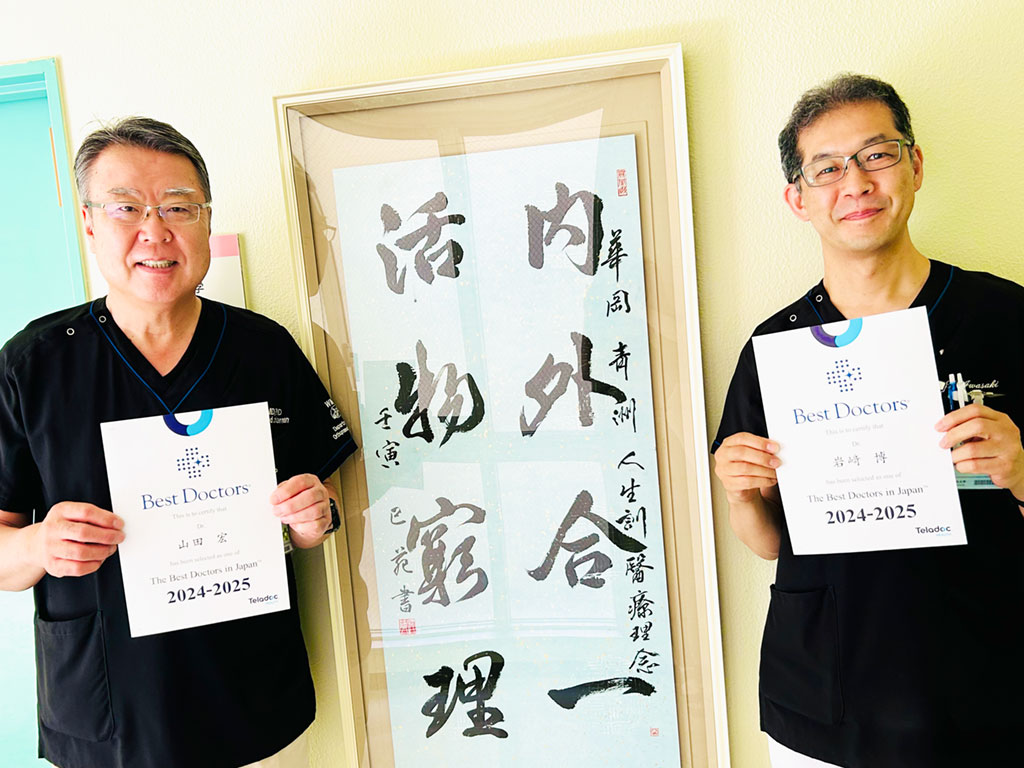 Best Doctors
This is to certify that
Dr.
山田 宏
has been selected as one of
The Best Doctors in Japan™
2024-2025
Teladoc
華岡青洲 人生訓醫療理念
内外合一
活物窮理
壬寅
Best Doctors
This is to certify that
Dr.
岩﨑 博
has been selected as one of
The Best Doctors in Japan™
2024-2025
Teladoc
Iwasaki